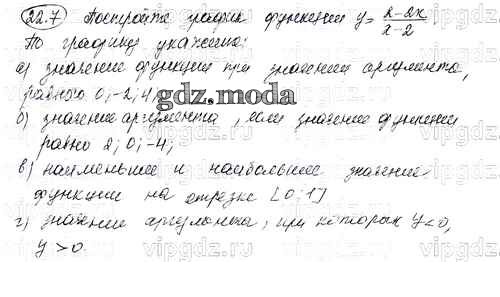 22.7 Постройте график функции y = x-2x / x-2
По графику укажите:
а) значение функции при значении аргумента,
равного 0; -2; 4;
gdz.moda
б) значение аргумента, если значение функции
равно 2; 0; -4;
в) наименьшее и наибольшее значение
функции на отрезке [0; 1]
г) значении аргумента, при которых y<0,
y > 0.
vipgdz.ru vipgdz.ru vipgdz.ru